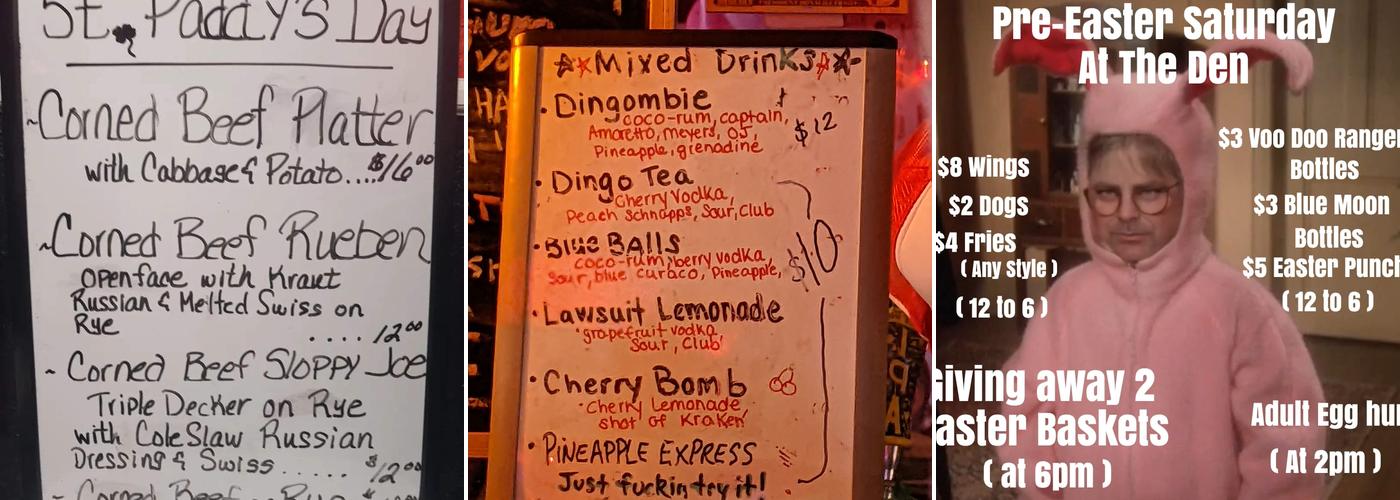 St. Paddy's Day
~Corned Beef Platter
with Cabbage & Potato....$16⁰⁰
~Corned Beef Rueben
openface with Kraut
Russian & Melted Swiss on
Rye
.... 12⁰⁰
~ Corned Beef Sloppy Joe
Triple Decker on Rye
with Cole Slaw Russian
Dressing & Swiss..... $12⁰⁰
~ Corned Beef
Mixed Drinks
• Dingombie
coco-rum, captain,
Amaretto, meyers, OJ,
Pineapple, grenadine
$12
• Dingo Tea
Cherry Vodka,
Peach Schnapps, Sour, Club
• Blue Balls
coco-rum, berry vodka,
Sour, blue curaco, Pineapple,
$10
• Lawsuit Lemonade
grapefruit vodka
Sour, Club
• Cherry Bomb
Cherry Lemonade
shot of Kraken
• PINEAPPLE EXPRESS
Just fuckin try it!
Pre-Easter Saturday
At The Den
$8 Wings
$2 Dogs
$4 Fries
( Any Style )
( 12 to 6 )
$3 Voo Doo Ranger
Bottles
$3 Blue Moon
Bottles
$5 Easter Punch
( 12 to 6 )
Giving away 2
aster Baskets
( at 6pm )
Adult Egg hu
( At 2pm )